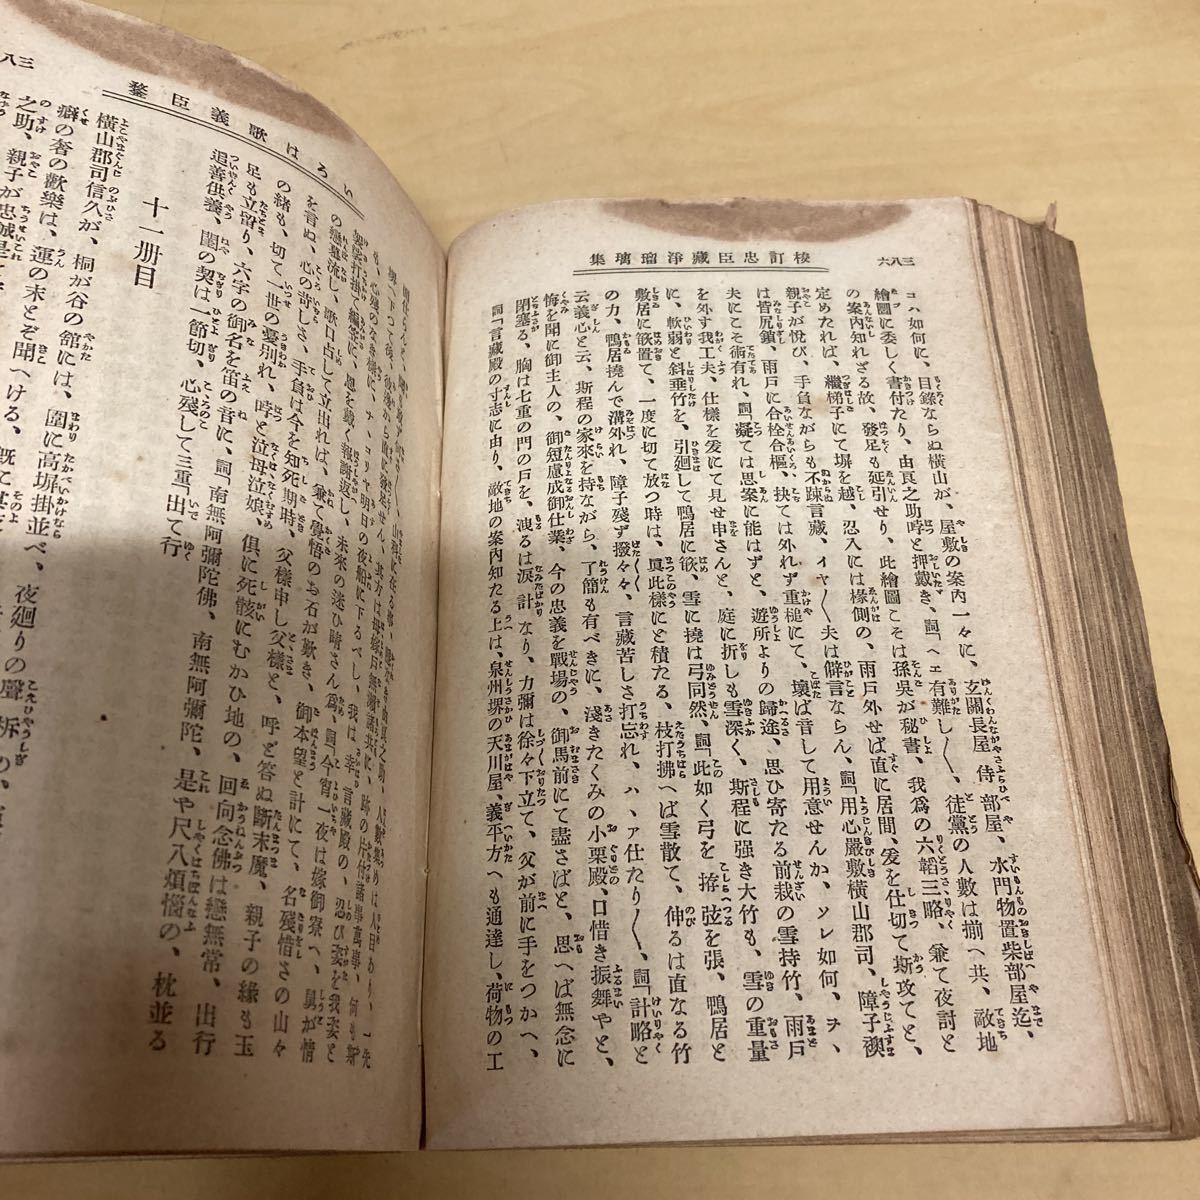 校訂忠臣藏淨瑠璃集
三八六
コハ如何に、目錄ならぬ橫山が、屋敷の案内一々に、玄關長屋侍部屋、水門物置柴部屋迄、
繪圖に委しく書付たり、由良之助哱と押戴き、詞「ヘエ有難し〱、徒黨の人數は揃へ共、敵地
の案内知れざる故、發足も延引せり、此繪圖こそは孫吳が秘書、我爲の六韜三略、兼て夜討と
定めたれば、繼梯子にて塀を越、忍入には椽側の、雨戶外せば直に居間、爰を仕切て斯攻てと、
親子が悅び、手負ながらも不踈言藏、イヤ〱夫は僻言ならん、詞「用心嚴敷橫山郡司、障子襖
は皆尻鎖、雨戶に合栓合樞、抉ては外れず重槌にて、壞ば音して用意せんか、ソレ如何、ヲ、
夫にこそ術有れ、詞「凝ては思案に能はずと、遊所よりの歸途、思ひ寄たる前栽の雪持竹、雨戶
を外す我工夫、仕樣を爰にて見せ申さんと、庭に折しも雪深く、斯程に强き大竹も、雪の重量
に、軟弱と斜垂竹を、引廻して鴨居に欲、雪に撓は弓同然、詞「此如く弓を拵弦を張、鴨居と
敷居に欲置て、一度に切て放つ時は、眞此樣にと積たる、枝打拂へば雪散て、伸るは直なる竹
の力、鴨居撓んで溝外れ、障子殘ず撥々々、言藏苦しさ打忘れ、ハ、ア仕たり〱、詞「計略と
云義心と云、斯程の家來を持ながら、了簡も有べきに、淺きたくみの小栗殿、口惜き振舞やと、
悔を聞に御主人の、御短慮成御仕業、今の忠義を戰場の、御馬前にて盡さばと、思へば無念に
閉塞る、胸は七重の門の戶を、洩るは淚計なり、力彌は徐々下立て、父が前に手をつかへ、
詞「言藏殿の寸志に由り、敵地の案内知たる上は、泉州堺の天川屋、義平方へも通達し、荷物の工
いろは歌義臣鍪
を言ぬ、心の苦しさ、手負は今を知死期時、父樣申し父樣と、呼と答ぬ斷末魔、親子の緣も玉
の緖も、切て一世の憂別れ、哱と泣母泣娘、俱に死骸にむかひ地の、回向念佛は戀無常、出行
足も立留り、六字の御名を笛の音に、詞「南無阿彌陀佛、南無阿彌陀、是や尺八煩惱の、枕並る
追善供養、閨の契は一節切、心殘して三重「出て行
十一册目
橫山郡司信久が、桐が谷の舘には、圍に高塀掛並べ、夜廻りの聲柝の、
癖の奢の歡樂は、運の末とぞ聞へける、旣に
之助、親子が忠誠是